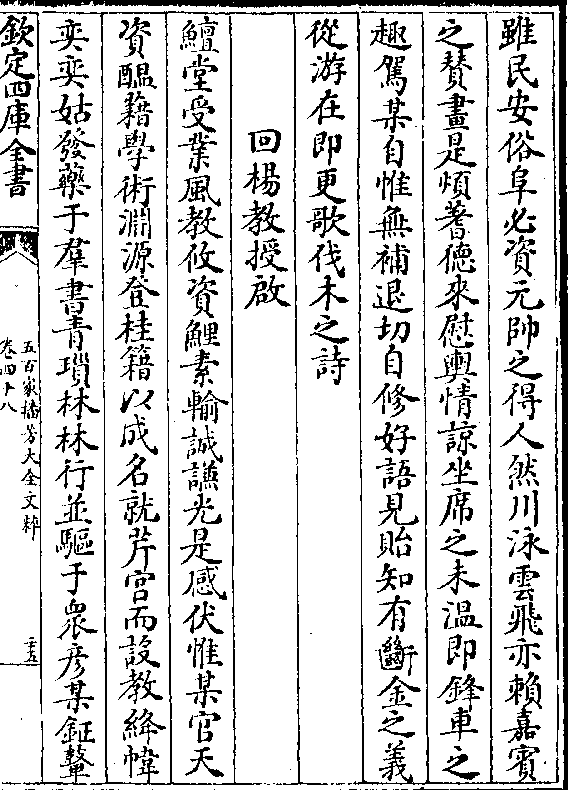 雖民安俗阜必資元帥之得人然川泳雲飛亦賴嘉賓
之賛畫是煩蓍德來慰輿情諒坐席之未溫即鋒車之
趣駕某自惟無補退切自修好語見貽知有斷金之義
從游在即更歌伐木之詩
回楊教授啟
鱣堂受業風教攸資鯉素輸誠謙光是感伏惟某官天
資醖藉學術淵源登桂籍以成名就芹宮而設教絳幃
奕奕姑發藥于羣書青瑣林林行並驅于衆彦某鉦鼙
欽定四庫全書
五百家播芳大全文粹
卷四十八
三五